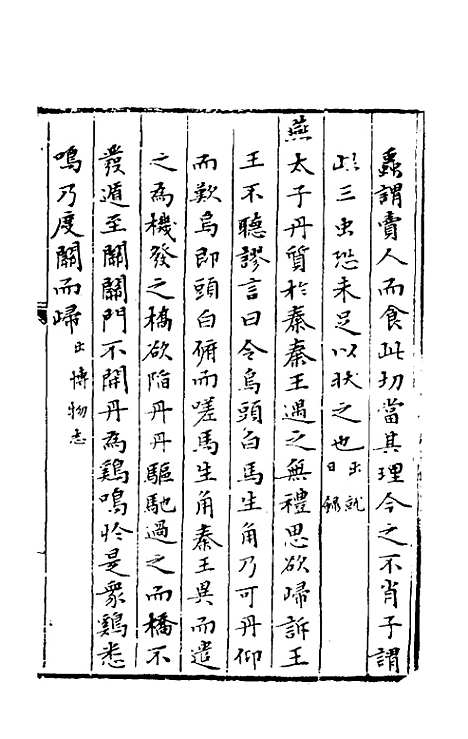 蟲謂賣人而食此切當其理今之不肖子謂
此三虫恐未足以狀之也出就日錄
燕太子丹質於秦秦王遇之無禮思欲歸訴王
王不聽謬言曰令烏頭白馬生角乃可丹仰
而歎烏即頭白俯而嗟馬生角秦王異而遣
之為機發之橋欲陷丹丹驅馳過之而橋不
發遁至關關門不開丹為鷄鳴於是衆鷄悉
鳴乃度關而歸出博物志